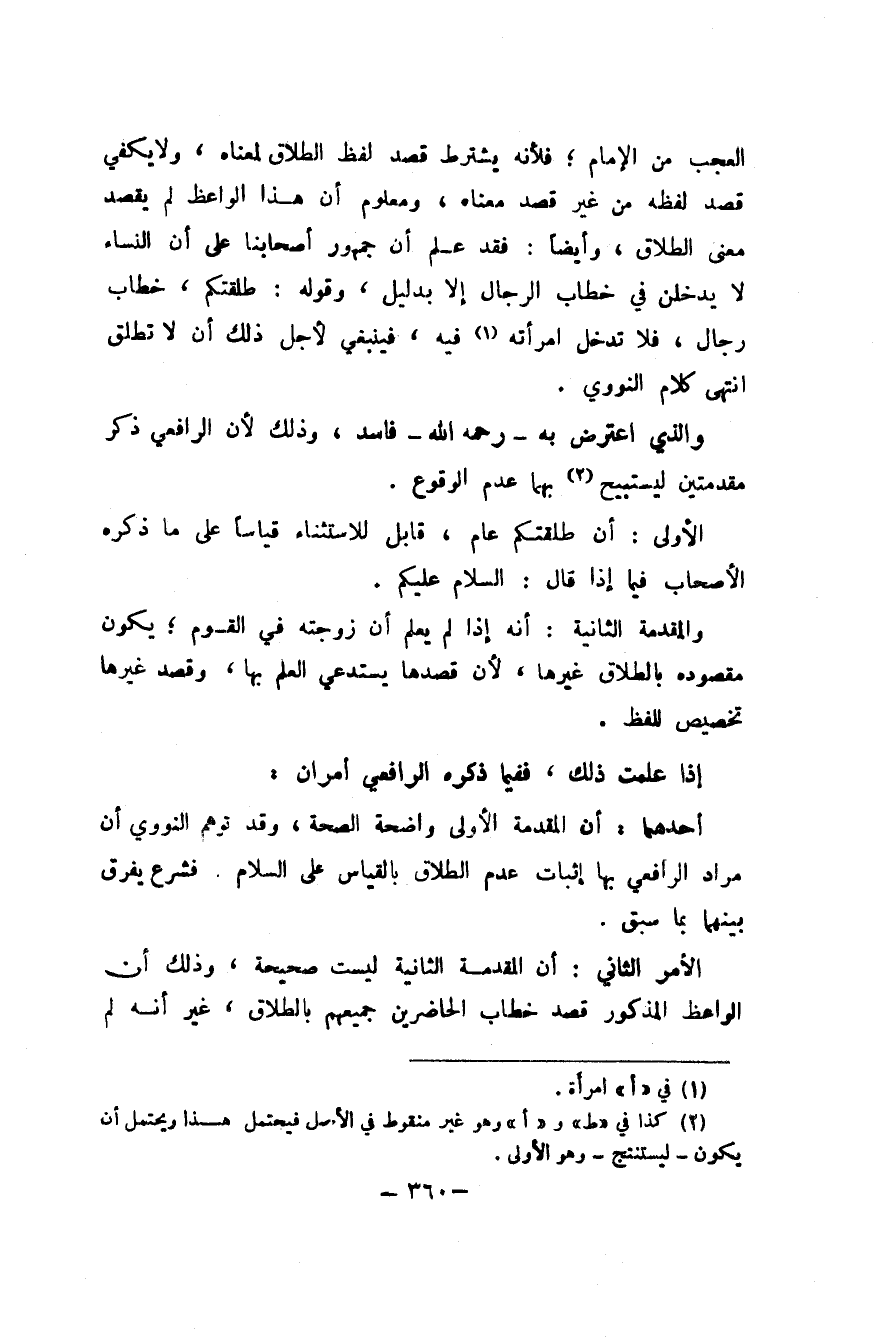 العجب من الإمام ؛ فلأنه يشترط قصد لفظ الطلاق لمعناه ، ولايكفي
قصد لفظه من غير قصد معناه ، ومعلوم أن هـذا الواعظ لم يقصد
معنى الطلاق ، وأيضاً : فقد عـلم أن جمهور أصحابنا على أن النساء
لا يدخلن في خطاب الرجال إلا بدليل ، وقوله : طلقتكم ، خطاب
رجال ، فلا تدخل امرأته (١) فيه ، فينبغي لأجل ذلك أن لا تطلق
انتهى كلام النووي .
والذي اعترض به ـ رحمه الله ـ فاسد ، وذلك لأن الرافعي ذكر
مقدمتين ليستبيح (٢) بهما عدم الوقوع .
الأولى : أن طلقتكم عام ، قابل للاستثناء قياساً على ما ذكره
الأصحاب فيما إذا قال : السلام عليكم .
والمقدمة الثانية : أنه إذا لم يعلم أن زوجته في القـوم ؛ يكون
مقصوده بالطلاق غيرها ، لأن قصدها يستدعي العلم بها ، وقصد غيرها
تخصيص للفظ .
إذا علمت ذلك ، ففيما ذكره الرافعي أمران :
أحدهما : أن المقدمة الأولى واضحة الصحة ، وقد توهم النووي أن
مراد الرافعي بها إثبات عدم الطلاق بالقياس على السلام . فشرع يفرق
بينهما بما سبق .
الأمر الثاني : أن المقدمـة الثانية ليست صحيحة ، وذلك أن
الواعظ المذكور قصد خطاب الحاضرين جميعهم بالطلاق ، غير أنـه لم
(١) في «أ» امرأة .
(٢) كذا في «ط» و «أ» وهو غير منقوط في الأصل فيحتمل هـذا ويحتمل أن
يكون ـ ليستنتج ـ وهو الأولى .
ـ ٣٦٠ ـ